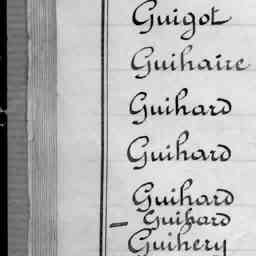 Guigot
Guihaire
Guihard
Guihard
Guihard
Guihard
Guihery